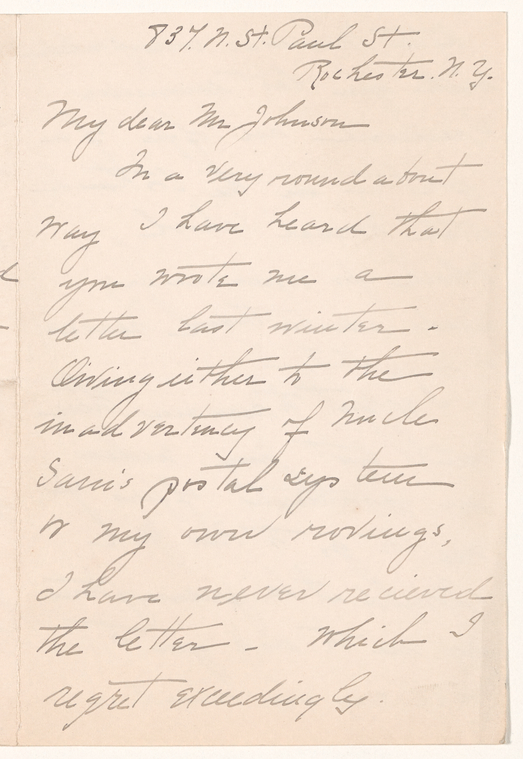 837. N. St. Paul St.
Rochester. N. Y.
My dear Mr Johnson
In a very round about
way I have heard that
you wrote me a
letter last winter.
Owing either to the
inadvertency of Uncle
Sam's postal system
or my own rovings,
I have never recieved
the letter - which I
regret exceedingly.